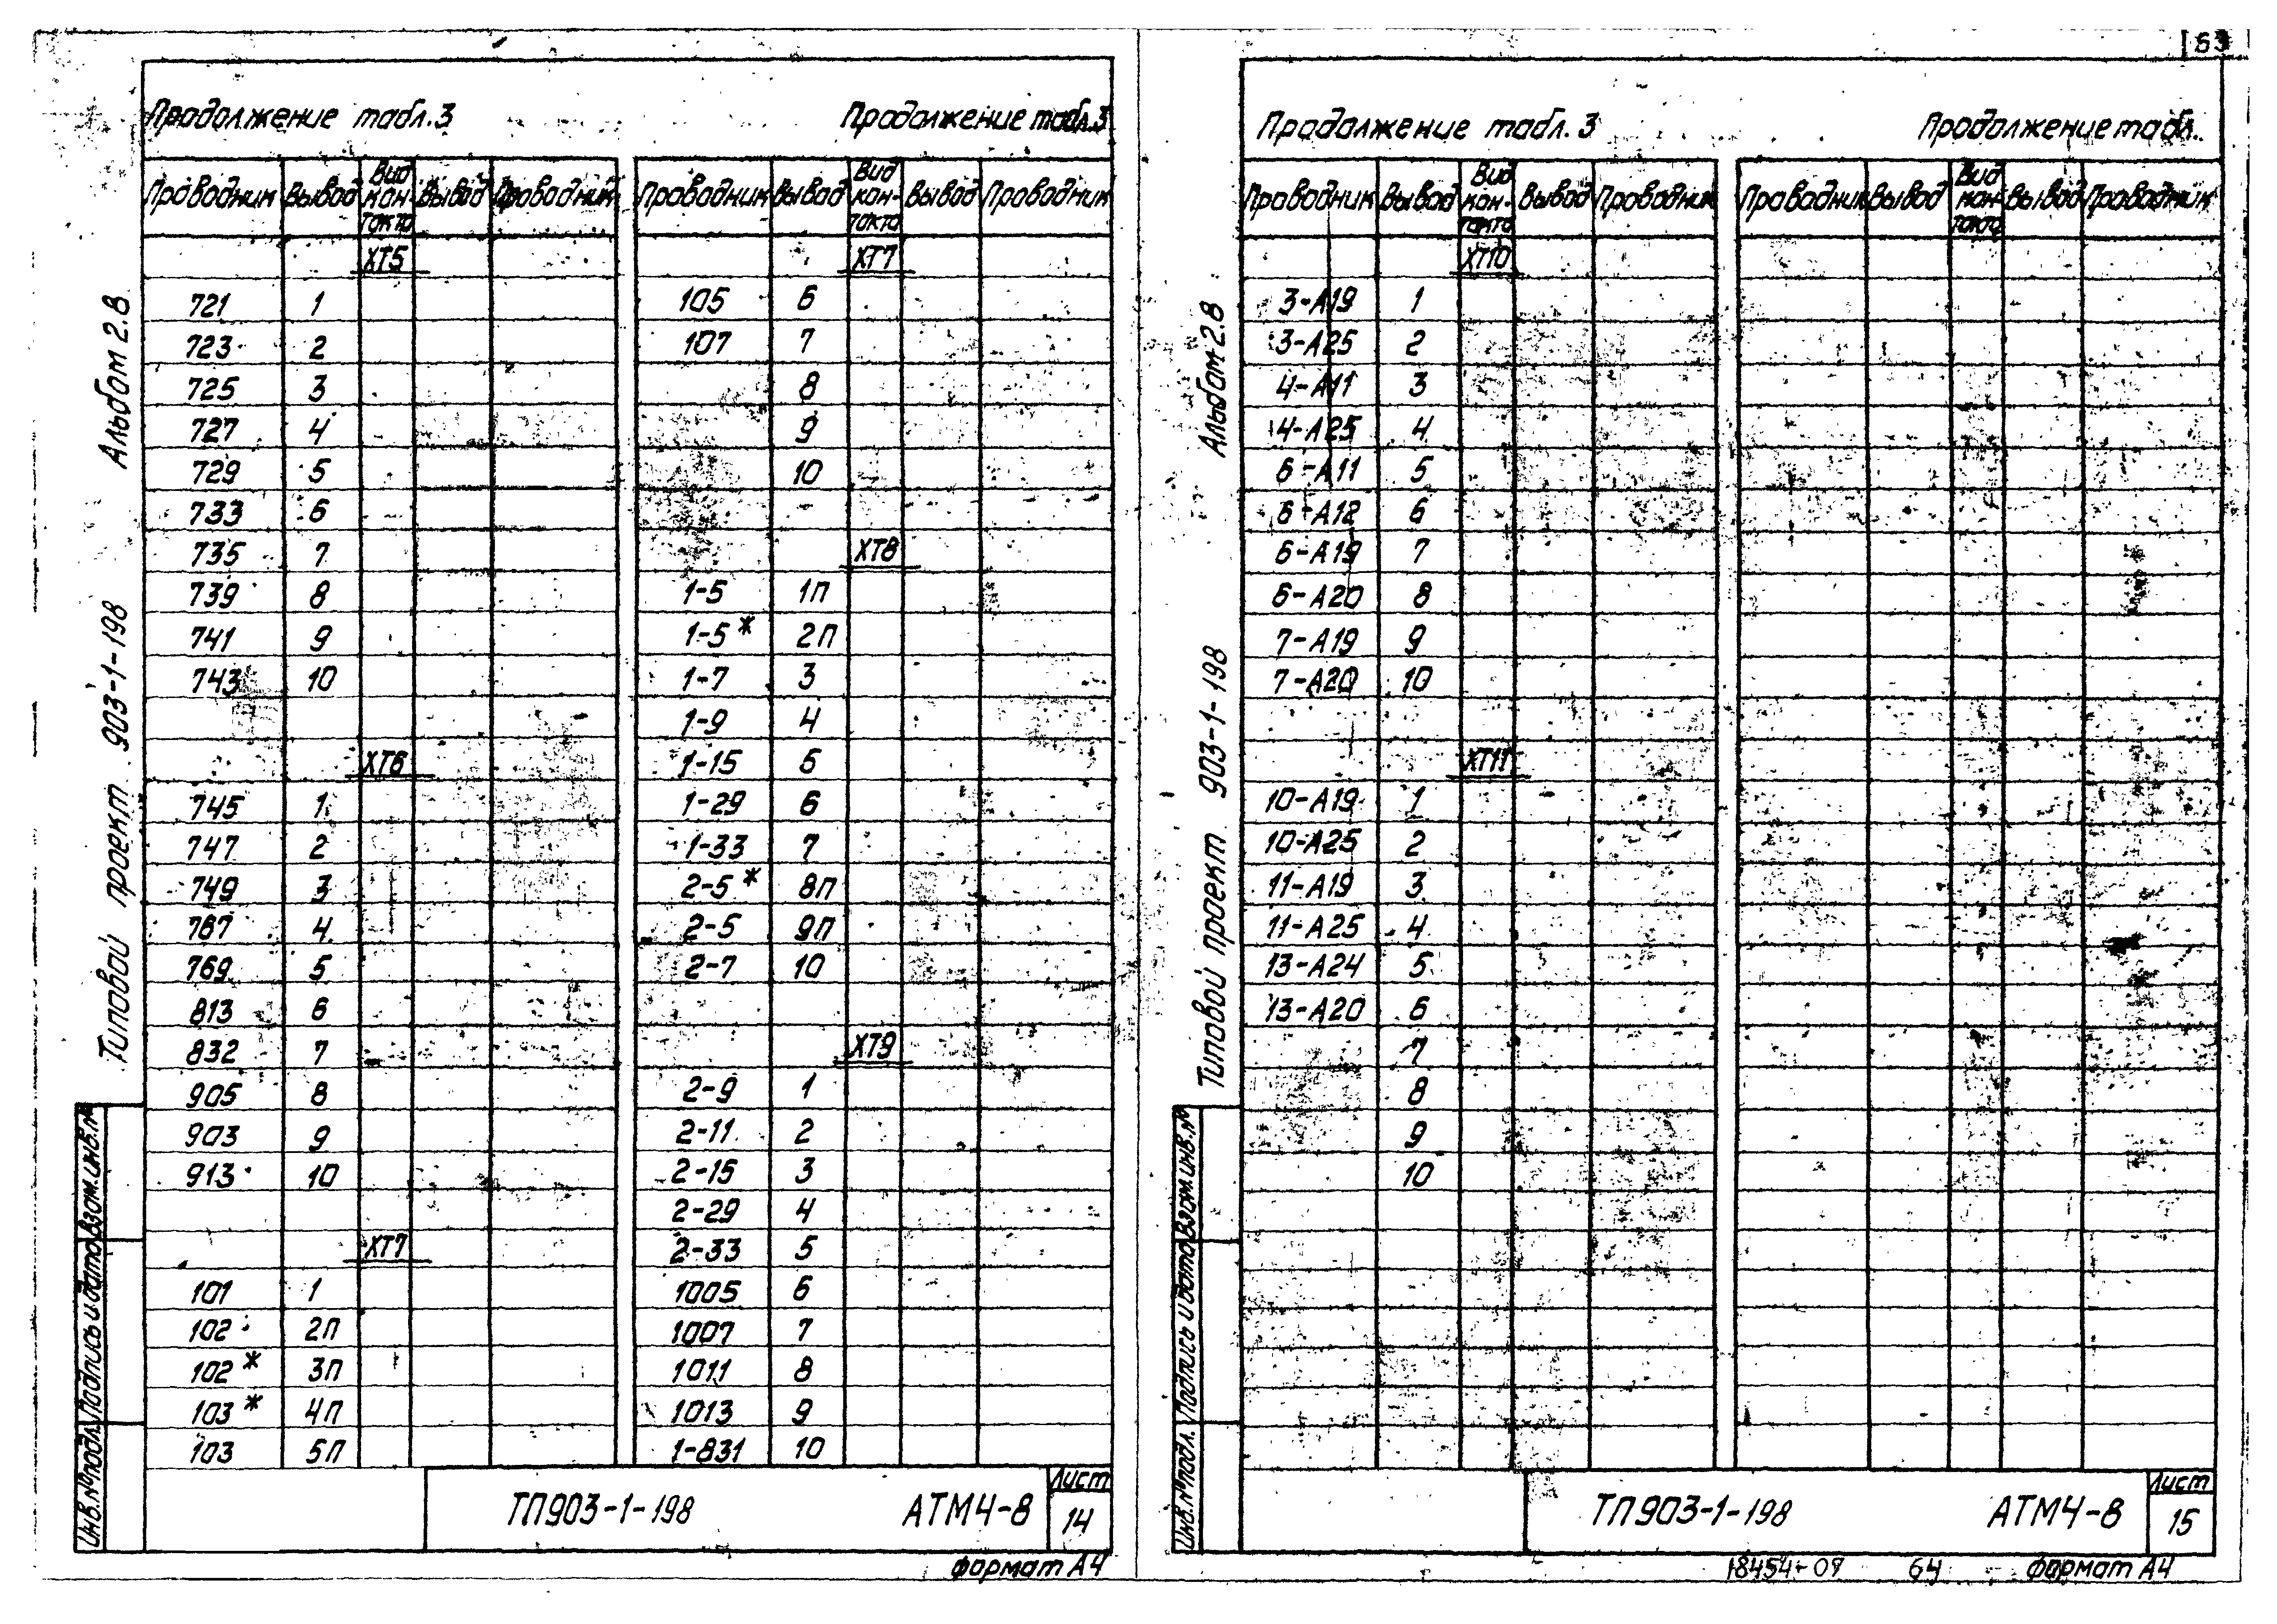 63
Продолжение табл.3
Продолжение табл.3
Проводник Вывод Вид контакта Вывод Проводник
Проводник Вывод Вид контакта Вывод Проводник
ХТ5
721 1
723 2
725 3
727 4
729 5
733 6
735 7
739 8
741 9
743 10
ХТ6
745 1
747 2
749 3
767 4
769 5
813 6
832 7
905 8
903 9
913 10
ХТ7
101 1
102 2П
102* 3П
103* 4П
103 5П
ХТ7
105 6
107 7
8
9
10
ХТ8
1-5 1П
1-5* 2П
1-7 3
1-9 4
1-15 5
1-29 6
1-33 7
2-5* 8П
2-5 9П
2-7 10
ХТ9
2-9 1
2-11 2
2-15 3
2-29 4
2-33 5
1005 6
1007 7
1011 8
1013 9
1-831 10
Типовой проект 903-1-198 Альбом 2.8
Инв.№подл. Подпись и дата Взам.инв.№
ТП903-1-198 АТМ4-8
Лист
14
формат А4
Продолжение табл.3
Продолжение табл.
Проводник Вывод Вид контакта Вывод Проводник
Проводник Вывод Вид контакта Вывод Проводник
ХТ10
3-А19 1
3-А25 2
4-А11 3
4-А25 4
6-А11 5
6-А12 6
6-А19 7
6-А20 8
7-А19 9
7-А20 10
ХТ11
10-А19 1
10-А25 2
11-А19 3
11-А25 4
13-А24 5
13-А20 6
7
8
9
10
Типовой проект 903-1-198 Альбом 2.8
Инв.№подл. Подпись и дата Взам.инв.№
ТП903-1-198 АТМ4-8
Лист
15
18454-07 64 формат А4